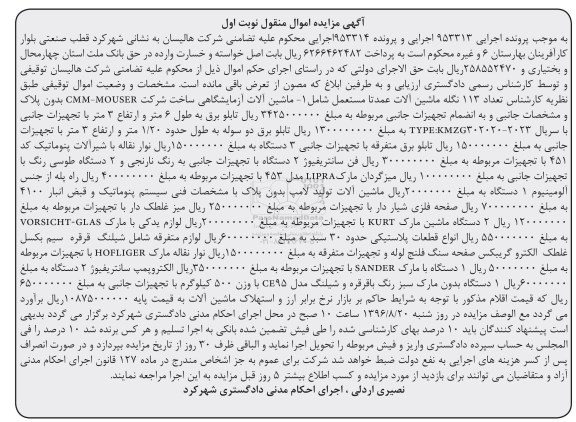 آگهی مزایده اموال منقول نوبت اول
به موجب پرونده اجرایی ۹۵۳۳۱۳ اجرایی و پرونده ۹۵۳۳۱۴اجرایی محکوم علیه تضامنی شرکت هالیسان به نشانی شهرکرد قطب صنعتی بلوار
کارآفرینان بهارستان ۶ و غیره محکوم است به پرداخت ۶۲۶۶۴۶۲۴۸۲ ریال بابت اصل خواسته و خسارت وارده در حق بانک ملت استان چهارمحال
و بختیاری و ۲۵۸۵۵۲۴۷۰ریال بابت حق الاجرای دولتی که در راستای اجرای حکم اموال ذیل از محکوم علیه تضامنی شرکت هالیسان توقیفی
و توسط کارشناس رسمی دادگستری ارزیابی و به طرفین ابلاغ که مصون از تعرض باقی مانده است. مشخصات و وضعیت اموال توقیفی طبق
نظریه کارشناس تعداد ۱۱۳ نگله ماشین آلات عمدتا مستعمل شامل۱- ماشین آلات آزمایشگاهی ساخت شرکت CMM-MOUSER بدون پلاک
و مشخصات جانبی و به انضمام تجهیزات جانبی مربوطه به مبلغ ۳۴۲۵۰۰۰۰۰۰ ریال تابلو برق به طول ۶ متر و ارتفاع ۳ متر با تجهیزات جانبی
با سریال TYPE:KMZG۳۰۲۰۲۰-۲۰۲۳ به مبلغ ۱۳۰۰۰۰۰۰۰۰ ریال تابلو برق دو سوله به طول حدود ۱/۲۰ متر و ارتفاع ۳ متر با تجهیزات
جانبی به مبلغ ۱۵۰۰۰۰۰۰۰ ریال تابلو برق متفرقه با تجهیزات جانبی ۳ دستگاه به مبلغ ۱۵۰۰۰۰۰۰۰ریال نوار نقاله با شیرآلات پنوماتیک کد
۴۵۱ با تجهیزات مربوطه به مبلغ ۳۰۰۰۰۰۰۰ ریال فن سانتریفیوژ ۲ دستگاه با تجهیزات جانبی به رنگ نارنجی و ۲ دستگاه طوسی رنگ با
تجهیزات جانبی به مبلغ ۱۰۰۰۰۰۰۰۰ ریال میزگردان مارکLIPRA مدل ۴۵۳ با تجهیزات مربوطه به مبلغ ۴۰۰۰۰۰۰۰ ریال راه پله از جنس
آلومینیوم ۱ دستگاه به مبلغ ۲۰۰۰۰۰۰۰ریال ماشین آلات تولید لامپ بدون پلاک با مشخصات فنی سیستم پنوماتیک و قبض انبار ۴۱۰۰
به مبلغ ۷۰۰۰۰۰۰۰۰ ریال صفحه فلزی شیار دار با تجهیزات مربوطه به مبلغ ۲۵۰۰۰۰۰۰۰ ریال میز غلطک دار با تجهیزات مربوطه به مبلغ
۱۲۰۰۰۰۰۰۰ ریال ۲ دستگاه ماشین مارک KURT با تجهیزات مربوطه به مبلغ ۲۰۰۰۰۰۰۰۰ریال لوازم یدکی با مارک VORSICHT-GLAS
به مبلغ ۵۵۰۰۰۰۰۰ ریال انواع قطعات پلاستیکی حدود ۳۰ سبد به مبلغ ۶۰۰۰۰۰۰۰ریال لوازم متفرقه شامل شیلنگ قرقره سیم بکسل
غلطک الکترو گریبکس صفحه سنگ فلنج لوله و تجهیزات متفرقه به مبلغ ۱۵۰۰۰۰۰۰۰ریال نوار نقاله مارک HOFLIGER با تجهیزات مربوطه
به مبلغ ۵۰۰۰۰۰۰۰ ریال ۱ دستگاه با مارک SANDER با تجهیزات مربوطه به مبلغ ۳۵۰۰۰۰۰۰۰ریال الکتروپمپ سانتریفیوژ ۲ دستگاه به مبلغ
۶۰۰۰۰۰۰۰ریال ۱ دستگاه بدون مارک سبز رنگ باقرقره و شیلنگ مدل CE۹۵ با وزن ۵۰۰ کیلوگرم با تجهیزات جانبی به مبلغ ۶۵۰۰۰۰۰۰۰
ریال که قیمت اقلام مذکور با توجه به شرایط حاکم بر بازار نرخ برابر ارز و استهلاک ماشین آلات به قیمت پایه ۱۰۸۷۵۰۰۰۰۰۰ریال برآورد
می گردد مع الوصف مزایده در روز شنبه ۱۳۹۶/۸/۲۰ ساعت ۱۰ صبح در محل اجرای احکام مدنی دادگستری شهرکرد برگزار می گردد بدیهی
است پیشنهاد کنندگان باید ۱۰ درصد بهای کارشناسی شده را طی فیش تضمین شده بانکی به اجرا تسلیم و هر کس برنده شد ۱۰ درصد را فی
المجلس به حساب سپرده دادگستری واریز و فیش مربوطه را تحویل اجرا نماید و الباقی ظرف ۳۰ روز از تاریخ مزایده بپردازد و در صورت انصراف
پس از کسر هزینه های اجرایی به نفع دولت ضبط خواهد شد شرکت برای عموم به جز اشخاص مندرج در ماده ۱۲۷ قانون اجرای احکام مدنی
آزاد و متقاضیان می توانند برای بازدید از مورد مزایده و کسب اطلاع بیشتر ۵ روز قبل مزایده به این اجرا مراجعه نمایند.
نصیری اردلی ، اجرای احکام مدنی دادگستری شهرکرد